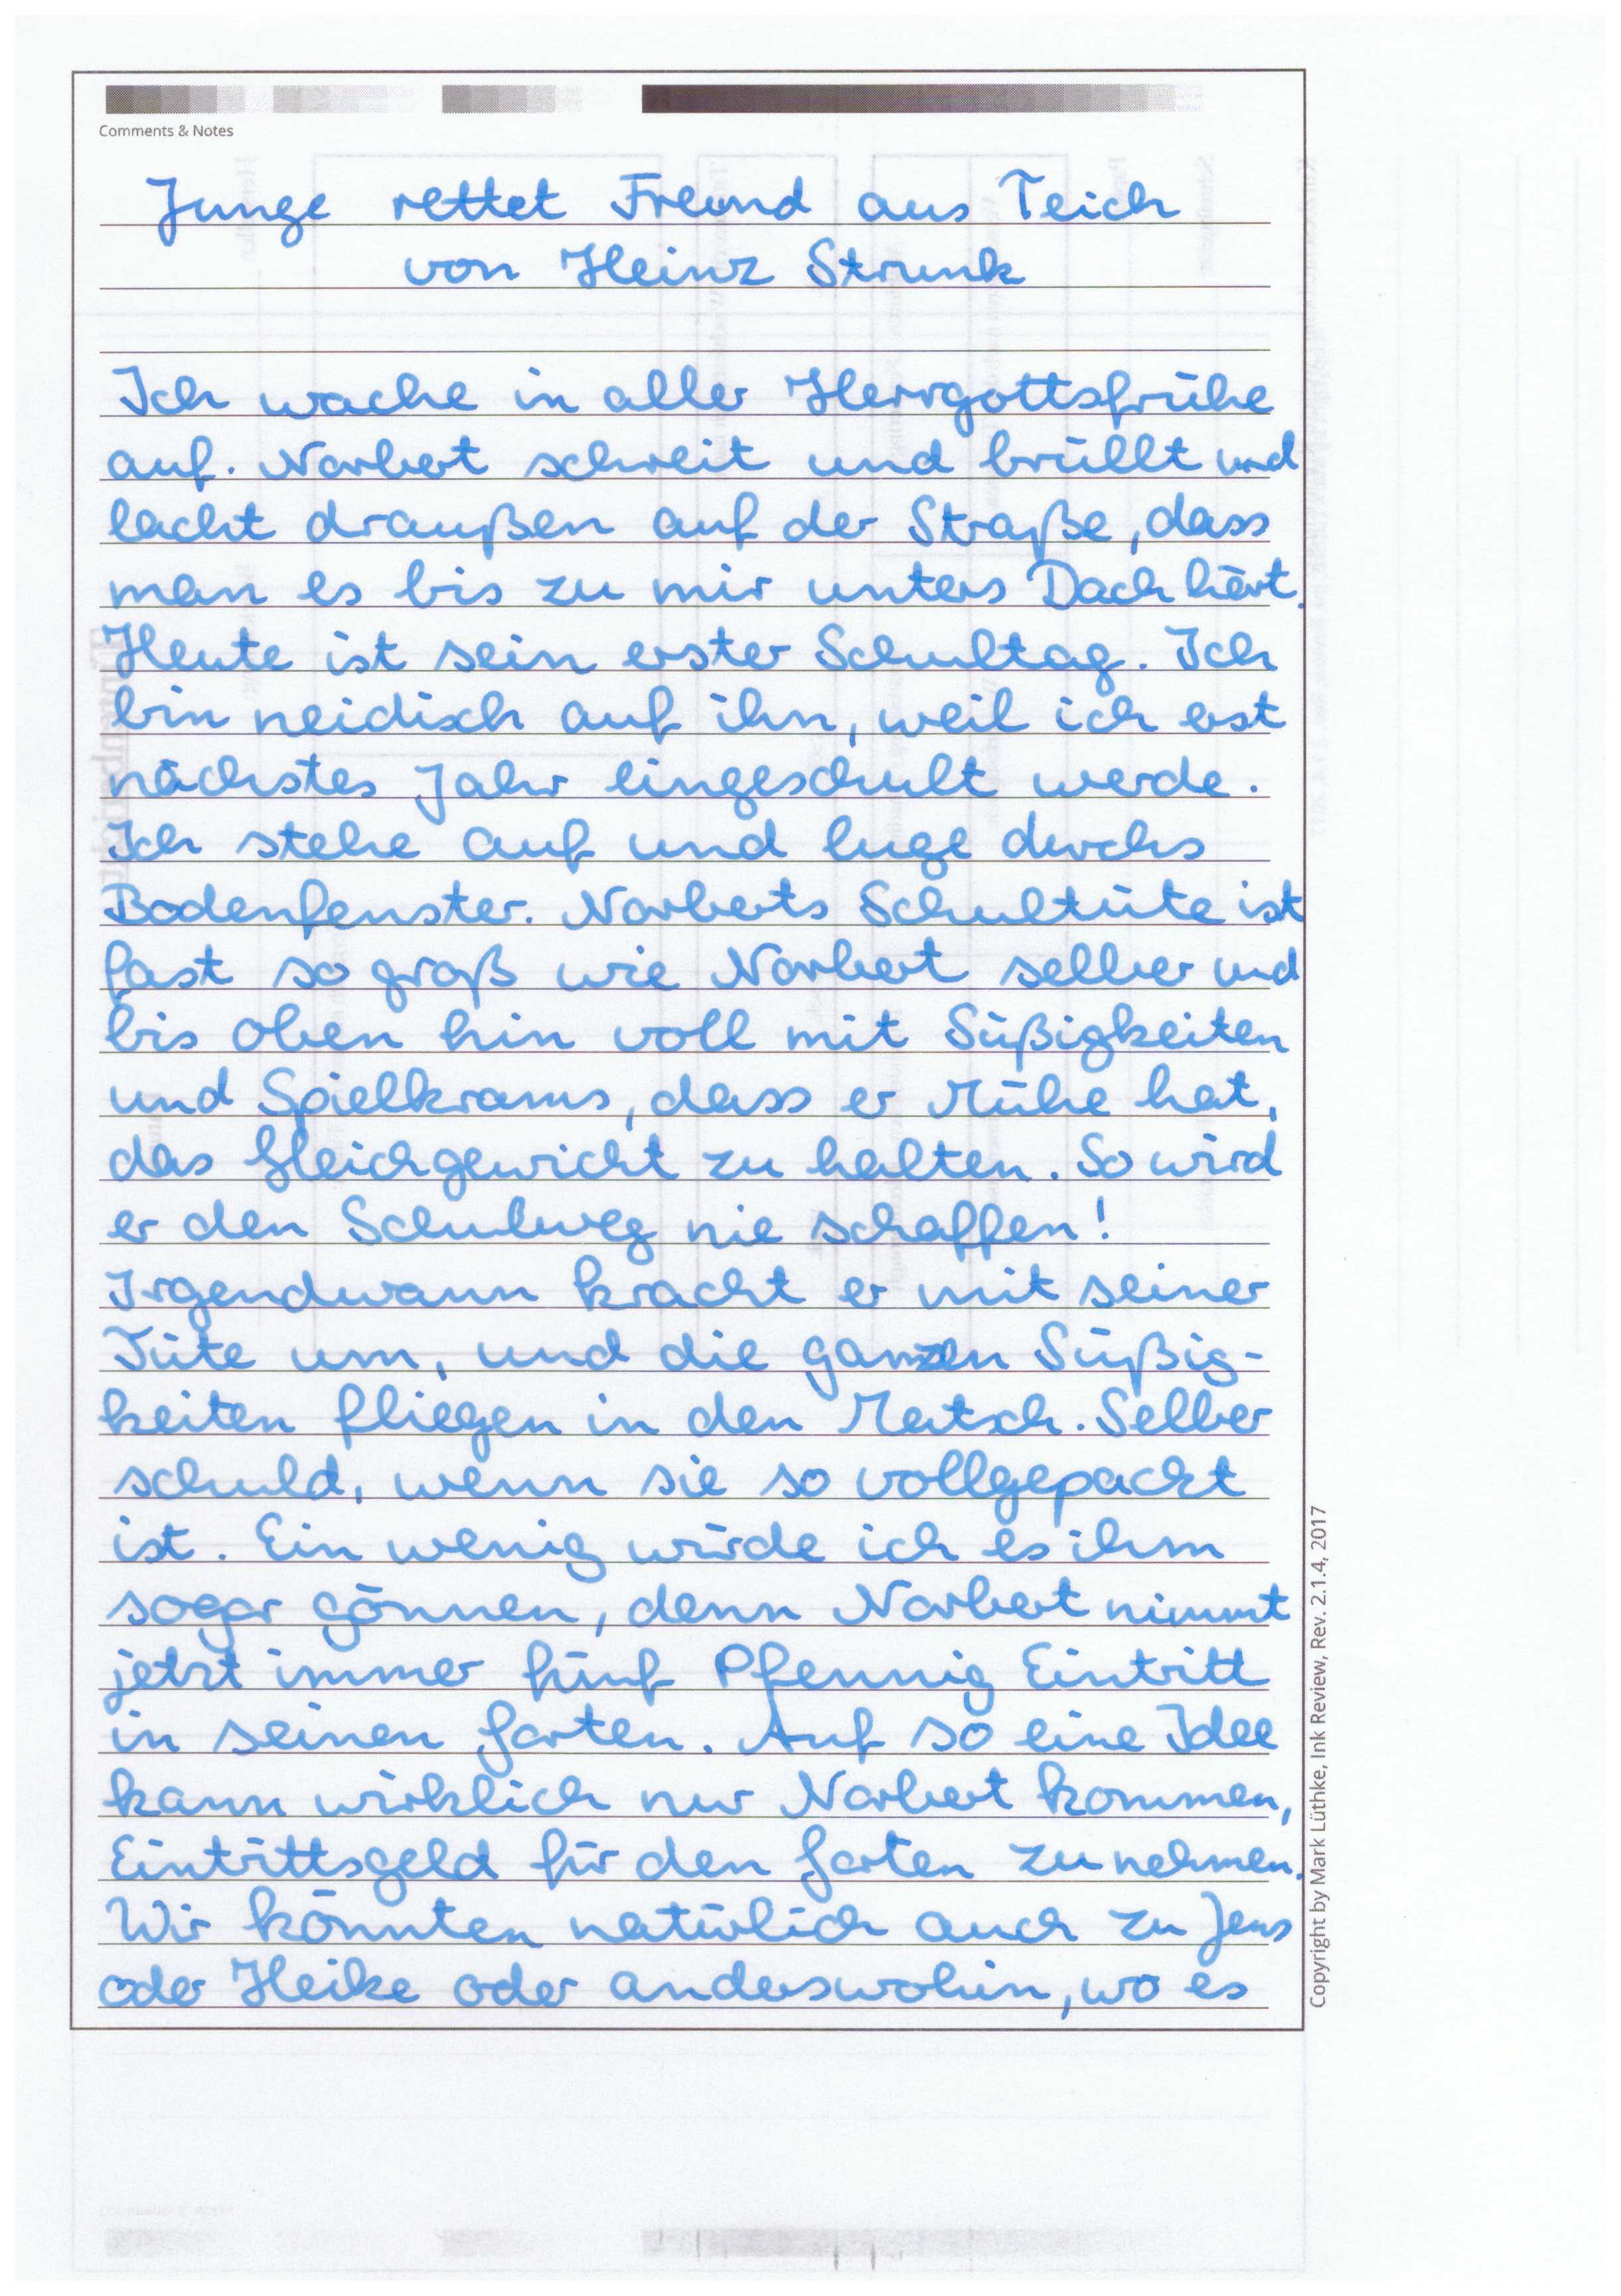 Comments & Notes
Junge rettet Freund aus Teich
von Heinz Strunk
Ich wache in aller Herrgottsfrühe
auf. Norbert schreit und brüllt und
lacht draußen auf der Straße, dass
man es bis zu mir unters Dach hört.
Heute ist sein erster Schultag. Ich
bin neidisch auf ihn, weil ich erst
nächstes Jahr eingeschult werde.
Ich stehe auf und luge durchs
Bodenfenster. Norberts Schultüte ist
fast so groß wie Norbert selber und
bis oben hin voll mit Süßigkeiten
und Spielkrams, dass er Mühe hat,
das Gleichgewicht zu halten. So wird
er den Schulweg nie schaffen!
Irgendwann kracht er mit seiner
Tüte um, und die ganzen Süßig-
keiten fliegen in den Matsch. Selber
schuld, wenn sie so vollgepackt
ist. Ein wenig würde ich es ihm
sogar gönnen, denn Norbert nimmt
jetzt immer fünf Pfennig Eintritt
in seinen Garten. Auf so eine Idee
kann wirklich nur Norbert kommen,
Eintrittsgeld für den Garten zu nehmen.
Wir könnten natürlich auch zu Jens
oder Heike oder anderswohin, wo es
Copyright by Mark Lüthke, Ink Review, Rev. 2.1.4, 2017